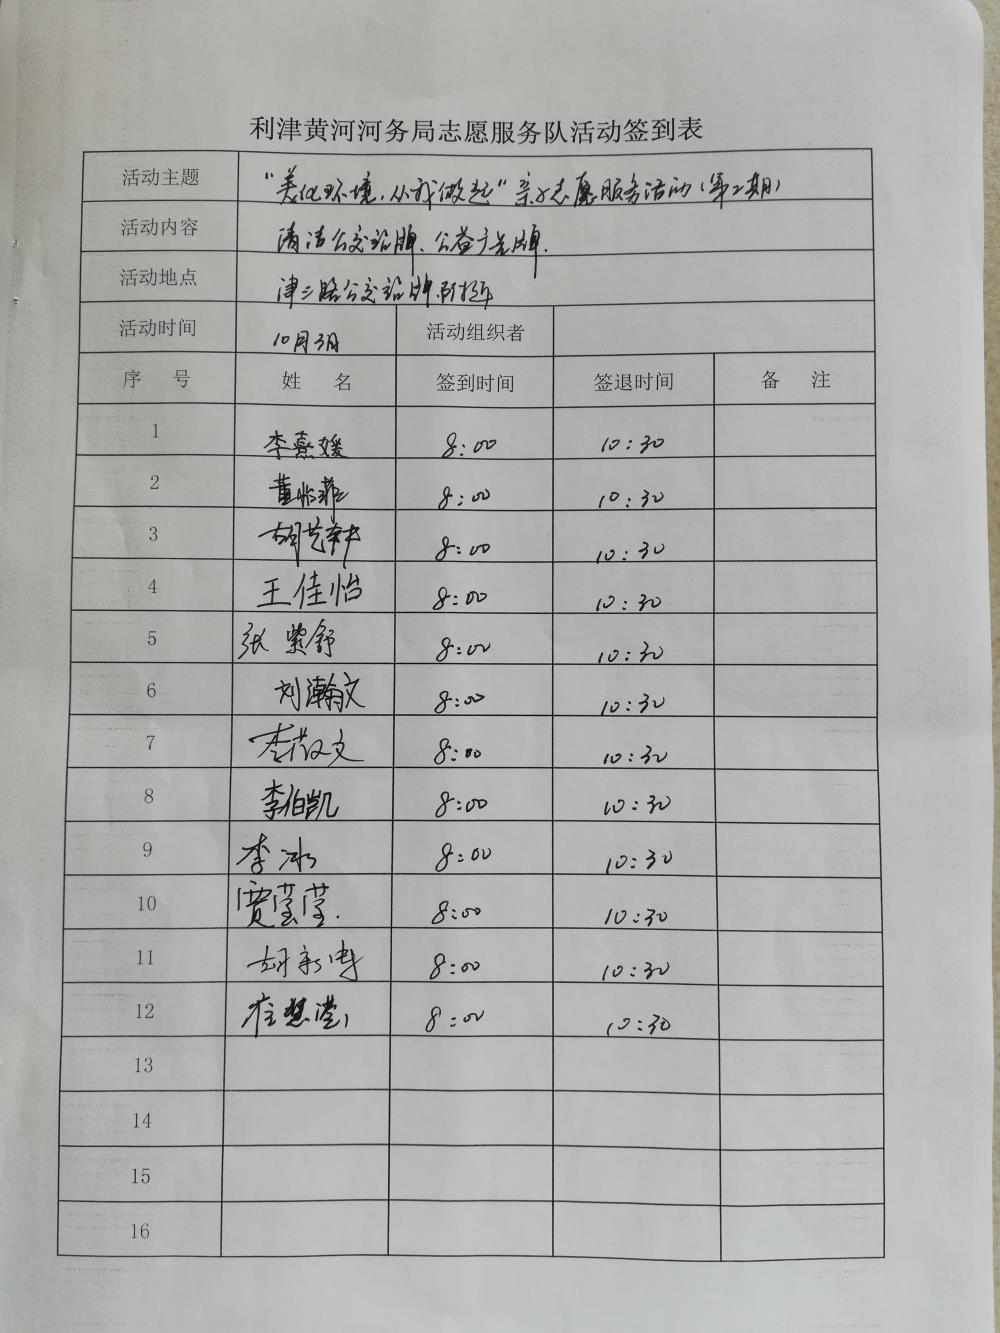 利津黄河河务局志愿服务队活动签到表
活动主题 “美化环境,从我做起”亲子志愿服务活动(第二期)
活动内容 清洁公交站牌、公益广告牌.
活动地点 津二路公交站牌附近
活动时间 10月3日 活动组织者
序 号 姓 名 签到时间 签退时间 备 注
1 李熹媛 8:00 10:30
2 董怡菲 8:00 10:30
3 胡艺轩 8:00 10:30
4 王佳怡 8:00 10:30
5 张紫舒 8:00 10:30
6 刘瀚文 8:00 10:30
7 李文 8:00 10:30
8 李伯凯 8:00 10:30
9 李冰 8:00 10:30
10 贾莹莹. 8:00 10:30
11 胡新 8:00 10:30
12 崔慧滢 8:00 10:30
13
14
15
16